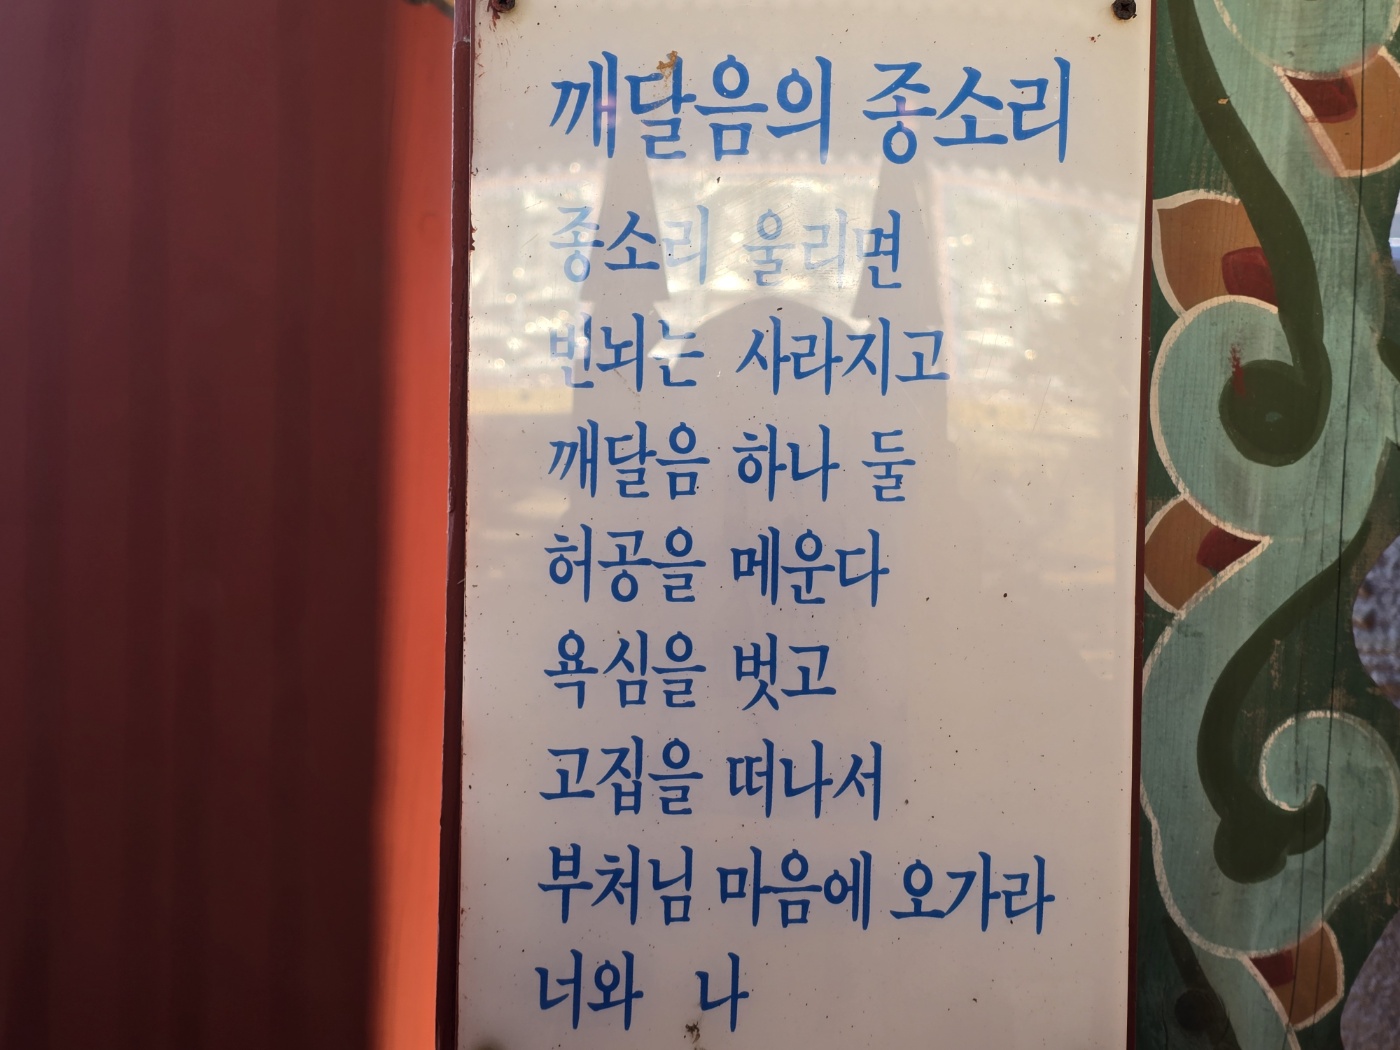 깨달음의 종소리
종소리 울리면
번뇌는 사라지고
깨달음 하나 둘
허공을 메운다
욕심을 벗고
고집을 떠나서
부처님 마음에 오가라
너와 나